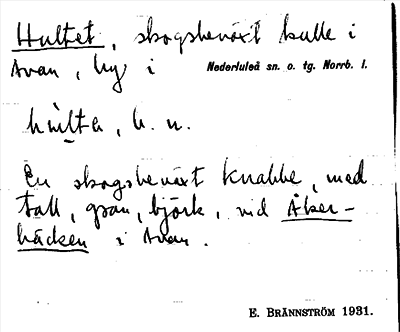 Hultet, skogsbeväxt kulle i
Avan, by i Nederluleå sn. o. tg. Norrb. l.
hu̇lta, b. n.
En skogsbeväxt knabbe, med
tall, gran, björk, vid Åker-
bäcken i Avan.
E. BRÄNNSTRÖM 1931.